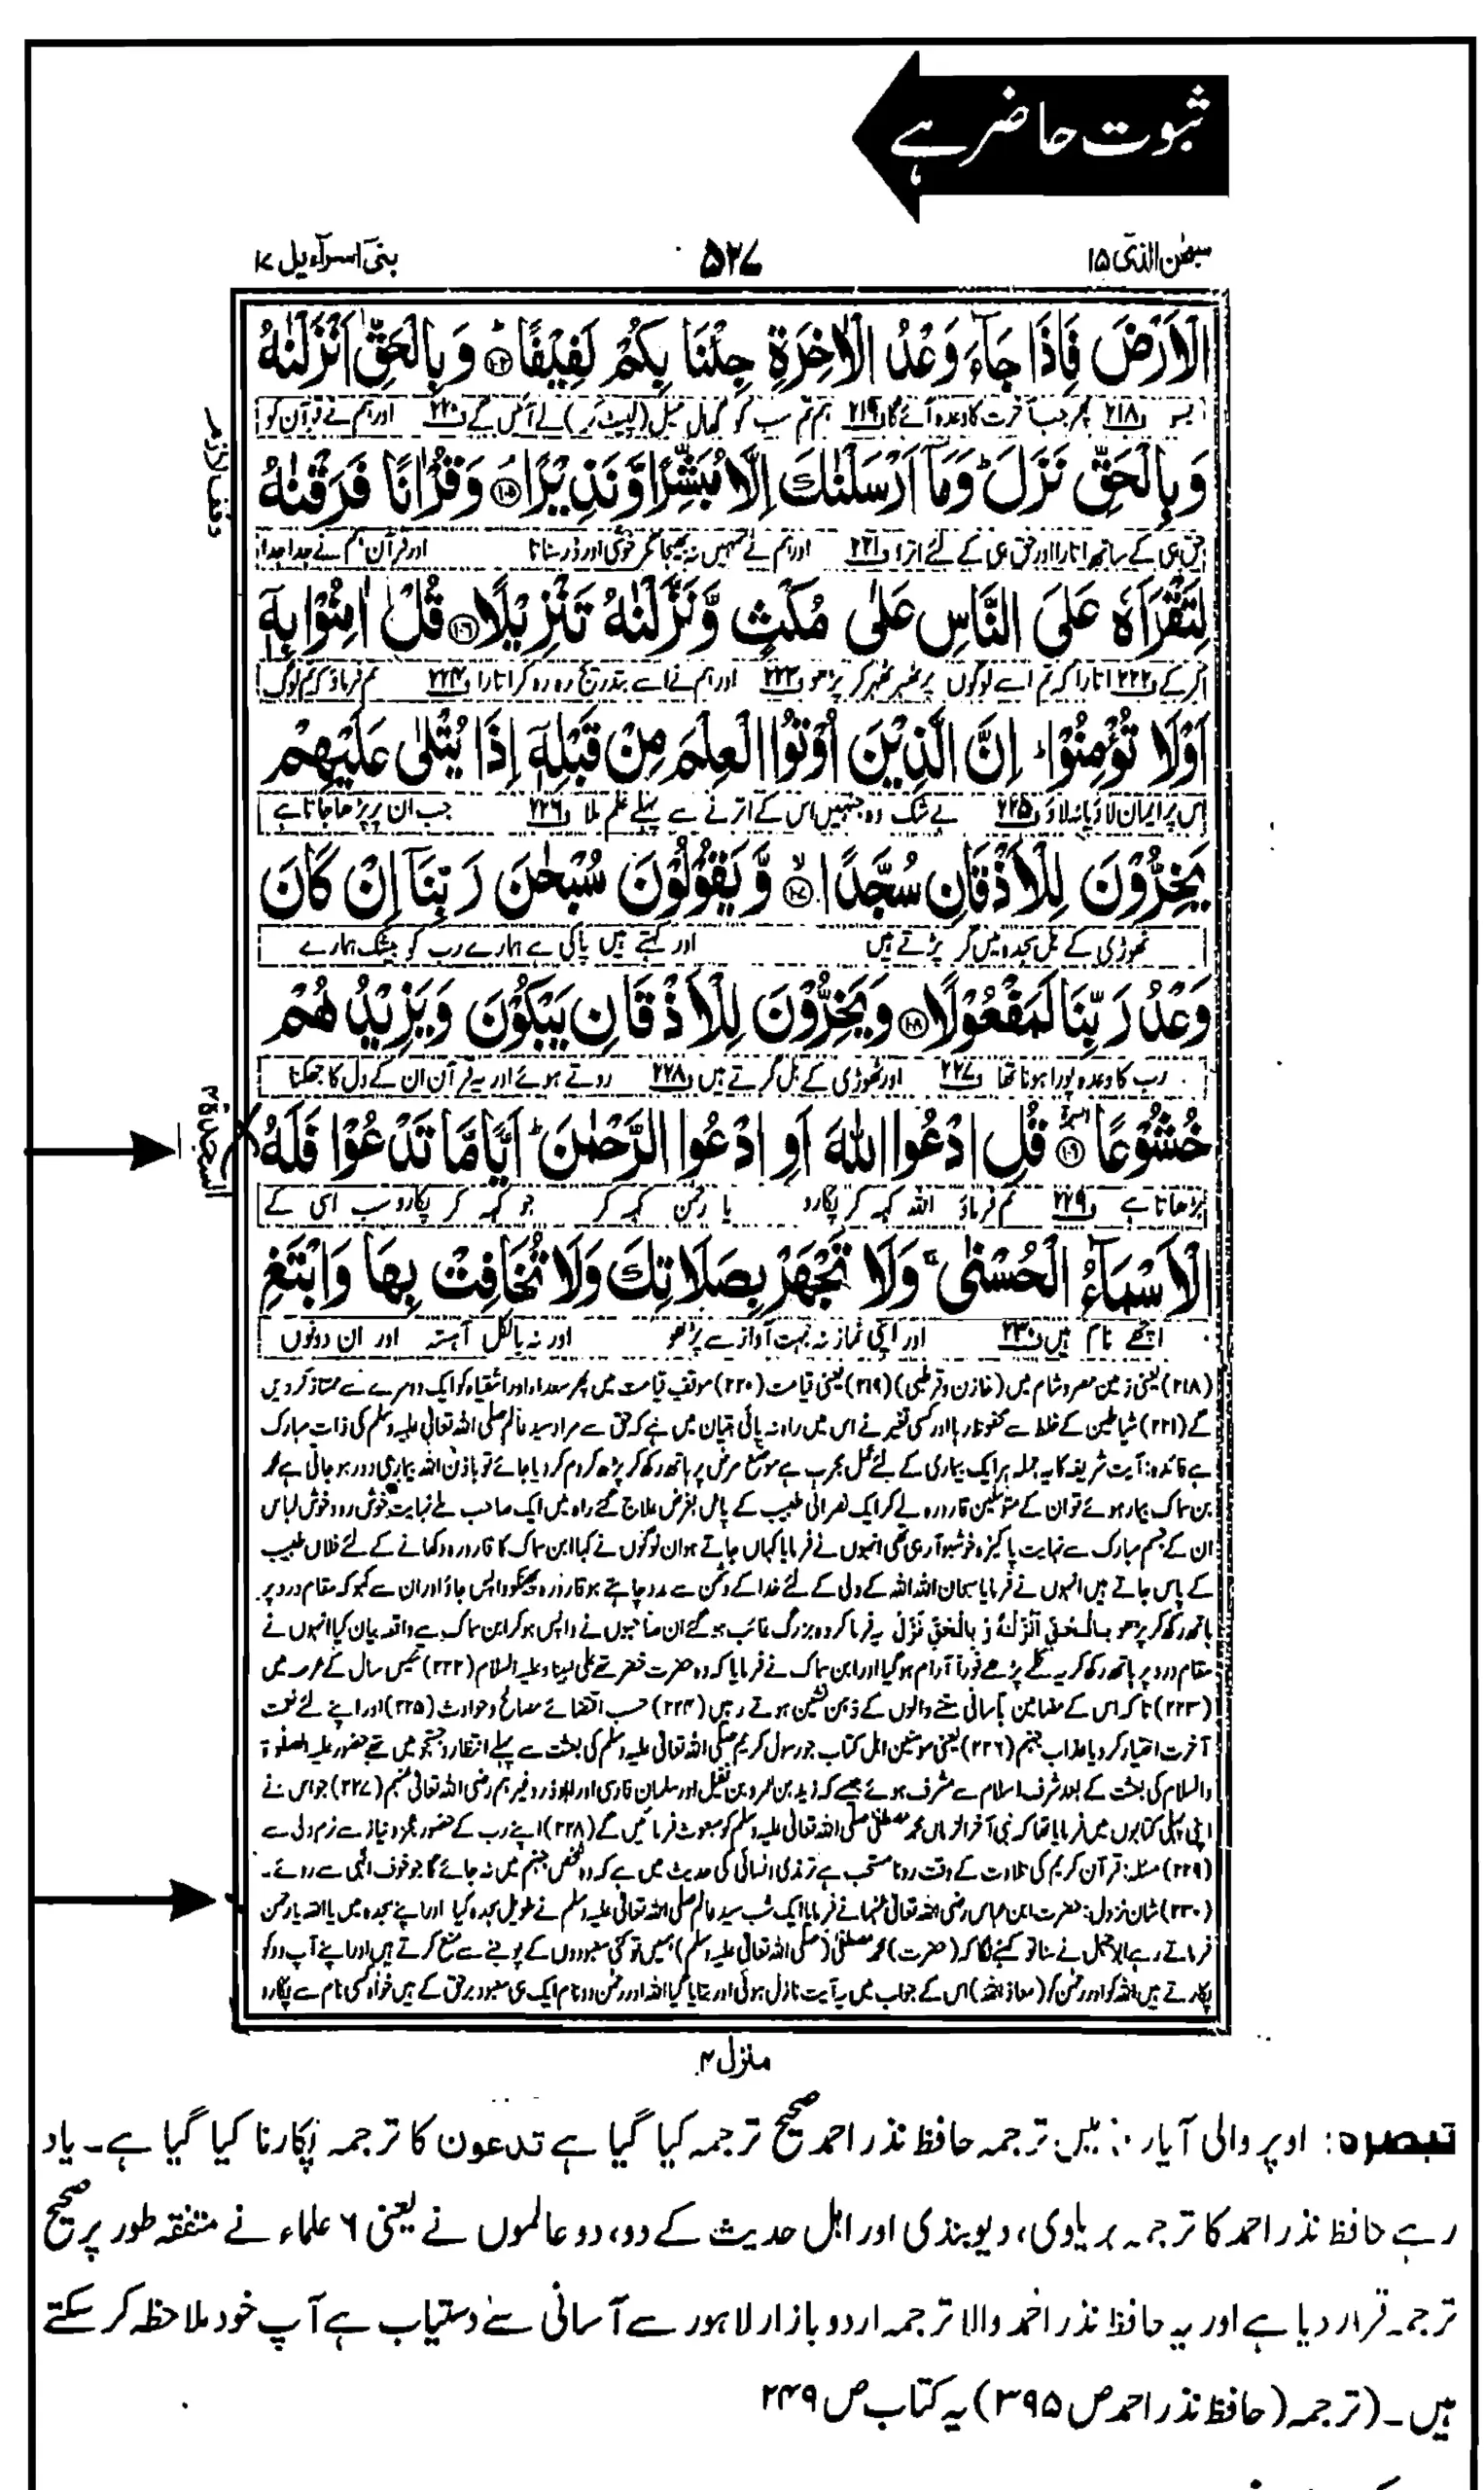 ثبوت حاضر ہے
سبحٰن الذیٓ ۱۵
۵۲۷
بنیٓ اسرآءیل ۱۷
الْاَرْضَ فَاِذَا جَآءَ وَعْدُ الْاٰخِرَةِ جِئْنَا بِكُمْ لَفِیْفًاؕ۝۱۰۴ وَ بِالْحَقِّ اَنْزَلْنٰهُ
بسو ف۲۱۸ پھر جب آخرت کا وعدہ آئے گا ف۲۱۹ ہم تم سب کو گھال میل (لپیٹ کر) لے آئیں گے ف۲۲۰ اور ہم نے قرآن کو
وَ بِالْحَقِّ نَزَلَؕ وَ مَاۤ اَرْسَلْنٰكَ اِلَّا مُبَشِّرًا وَّ نَذِیْرًاۘ۝۱۰۵ وَ قُرْاٰنًا فَرَقْنٰهُ
حق ہی کے ساتھ اتارا اور حق ہی کے لئے اترا ف۲۲۱ اور ہم نے تمہیں نہ بھیجا مگر خوشی اور ڈر سناتا اور قرآن ہم نے جدا جدا
لِتَقْرَاَهٗ عَلَى النَّاسِ عَلٰى مُكْثٍ وَّ نَزَّلْنٰهُ تَنْزِیْلًا۝۱۰۶ قُلْ اٰمِنُوْا بِهٖۤ
کر کے ف۲۲۲ اتارا کہ تم اسے لوگوں پر ٹھہر ٹھہر کر پڑھو ف۲۲۳ اور ہم نے اسے بتدریج رہ رہ کر اتارا ف۲۲۴ تم فرماؤ کہ تم لوگ
اَوْ لَا تُؤْمِنُوْاؕ اِنَّ الَّذِیْنَ اُوْتُوا الْعِلْمَ مِنْ قَبْلِهٖۤ اِذَا یُتْلٰى عَلَیْهِمْ
اس پر ایمان لاؤ یا نہ لاؤ ف۲۲۵ بے شک وہ جنہیں اس کے اترنے سے پہلے علم ملا ف۲۲۶ جب ان پر پڑھا جاتا ہے
یَخِرُّوْنَ لِلْاَذْقَانِ سُجَّدًاۙ۝۱۰۷ وَّ یَقُوْلُوْنَ سُبْحٰنَ رَبِّنَاۤ اِنْ كَانَ
ٹھوڑی کے بل سجدہ میں گر پڑتے ہیں اور کہتے ہیں پاکی ہے ہمارے رب کو بیشک ہمارے
وَعْدُ رَبِّنَا لَمَفْعُوْلًا۝۱۰۸ وَ یَخِرُّوْنَ لِلْاَذْقَانِ یَبْكُوْنَ وَ یَزِیْدُهُمْ
رب کا وعدہ پورا ہونا تھا ف۲۲۷ اور ٹھوڑی کے بل گرتے ہیں ف۲۲۸ روتے ہوئے اور یہ قرآن ان کے دل کا جھکنا
خُشُوْعًا۝۱۰۹ قُلِ ادْعُوا اللّٰهَ اَوِ ادْعُوا الرَّحْمٰنَؕ اَیًّا مَّا تَدْعُوْا فَلَهُ
بڑھاتا ہے ف۲۲۹ تم فرماؤ اللہ کہہ کر پکارو یا رحمٰن کہہ کر جو کہہ کر پکارو سب اسی کے
الْاَسْمَآءُ الْحُسْنٰىۚ وَ لَا تَجْهَرْ بِصَلَاتِكَ وَ لَا تُخَافِتْ بِهَا وَ ابْتَغِ
اچھے نام ہیں ف۲۳۰ اور اپنی نماز نہ بہت آواز سے پڑھو اور نہ بالکل آہستہ اور ان دونوں
(۲۱۸) یعنی زمین مصر و شام میں (خازن و قرطبی) (۲۱۹) یعنی قیامت (۲۲۰) موقف قیامت میں پھر سعداء اور اشقیاء کو ایک دوسرے سے ممتاز کر دیں
گے (۲۲۱) شیاطین کے خلط سے محفوظ رہا اور کسی تغیر نے اس میں راہ نہ پائی تبیان میں ہے کہ حق سے مراد سید عالم صلی اللہ تعالیٰ علیہ وسلم کی ذات مبارک
ہے فائدہ: آیت شریفہ کا یہ جملہ ہر ایک بیماری کے لئے عمل مجرب ہے موضع مرض پر ہاتھ رکھ کر پڑھ کر دم کر دیا جائے تو باذن اللہ بیماری دور ہو جاتی ہے محمد
بن سماک بیمار ہوئے تو ان کے متوسلین قارورہ لے کر ایک نصرانی طبیب کے پاس بغرض علاج گئے راہ میں ایک صاحب ملے نہایت خوش رو و خوش لباس
ان کے جسم مبارک سے نہایت پاکیزہ خوشبو آ رہی تھی انہوں نے فرمایا کہاں جاتے ہو ان لوگوں نے کہا ابن سماک کا قارورہ دکھانے کے لئے فلاں طبیب
کے پاس جاتے ہیں انہوں نے فرمایا سبحان اللہ اللہ کے ولی کے لئے خدا کے دشمن سے مدد چاہتے ہو قارورہ پھینکو واپس جاؤ اور ان سے کہو کہ مقام درد پر
ہاتھ رکھ کر پڑھو بِالْحَقِّ اَنْزَلْنٰهُ وَ بِالْحَقِّ نَزَلَ یہ فرما کر وہ بزرگ غائب ہو گئے ان صاحبوں نے واپس ہو کر ابن سماک سے واقعہ بیان کیا انہوں نے
مقام درد پر ہاتھ رکھ کر یہ کلمے پڑھے فوراً آرام ہو گیا اور ابن سماک نے فرمایا کہ وہ حضرت خضر تھے علیٰ نبینا و علیہ السلام (۲۲۲) تئیس سال کے عرصہ میں
(۲۲۳) تاکہ اس کے مضامین بآسانی سننے والوں کے ذہن نشین ہوتے رہیں (۲۲۴) حسب اقتضائے مصالح و حوادث (۲۲۵) اور اپنے لئے نعمت
آخرت اختیار کر دیا عذاب جہنم (۲۲۶) یعنی مومنین اہل کتاب جو رسول کریم صلی اللہ تعالیٰ علیہ وسلم کی بعثت سے پہلے انتظار و جستجو میں تھے حضور علیہ الصلوٰۃ
والسلام کی بعثت کے بعد شرف اسلام سے مشرف ہوئے جیسے کہ زید بن عمرو بن نفیل اور سلمان فارسی اور ابوذر وغیرہم رضی اللہ تعالیٰ عنہم (۲۲۷) جو اس نے
اپنی پہلی کتابوں میں فرمایا تھا کہ نبی آخر الزماں محمد مصطفیٰ صلی اللہ تعالیٰ علیہ وسلم کو مبعوث فرمائیں گے (۲۲۸) اپنے رب کے حضور عجز و نیاز سے نرم دلی سے
(۲۲۹) مسئلہ: قرآن کریم کی تلاوت کے وقت رونا مستحب ہے ترمذی و نسائی کی حدیث میں ہے کہ وہ شخص جہنم میں نہ جائے گا جو خوف الٰہی سے روئے۔
(۲۳۰) شان نزول: حضرت ابن عباس رضی اللہ تعالیٰ عنہما نے فرمایا ایک شب سید عالم صلی اللہ تعالیٰ علیہ وسلم نے طویل سجدہ کیا اور اپنے سجدہ میں یا اللہ یا رحمٰن
فرماتے رہے ابوجہل نے سنا تو کہنے لگا کہ (حضرت) محمد مصطفیٰ (صلی اللہ تعالیٰ علیہ وسلم) ہمیں تو کئی معبودوں کے پوجنے سے منع کرتے ہیں اور اپنے آپ دو کو
پکارتے ہیں اللہ کو اور رحمٰن کو (معاذ اللہ) اس کے جواب میں یہ آیت نازل ہوئی اور بتایا گیا اللہ اور رحمٰن دو نام ایک ہی معبود برحق کے ہیں خواہ کسی نام سے پکارو
منزل ۴
تبصرہ: اوپر والی آیا میں ترجمہ حافظ نذر احمد صحیح ترجمہ کیا گیا ہے تدعون کا ترجمہ پکارنا کیا گیا ہے۔ یاد
رہے حافظ نذر احمد کا ترجمہ بریلوی، دیوبندی اور اہل حدیث کے دو، دو عالموں نے یعنی ۶ علماء نے متفقہ طور پر صحیح
ترجمہ قرار دیا ہے اور یہ حافظ نذر احمد والا ترجمہ اردو بازار لاہور سے آسانی سے دستیاب ہے آپ خود ملاحظہ کر سکتے
ہیں۔ (ترجمہ (حافظ نذر احمد ص ۳۹۵) یہ کتاب ص ۲۴۹